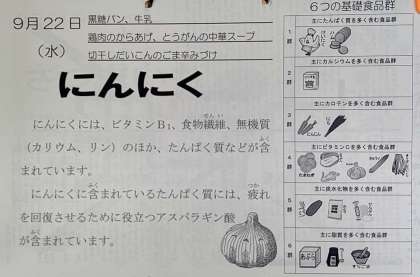 9月22日
(水)
黒糖パン、牛乳
鶏肉のからあげ、とうがんの中華スープ
切干しだいこんのごま辛みづけ
にんにく
にんにくには、ビタミンB₁、食物繊維、無機質
(カリウム、リン)のほか、たんぱく質などが含
まれています。
にんにくに含まれているたんぱく質には、疲れ
を回復させるために役立つアスパラギン酸
が含まれています。
6つの基礎食品群
1群
主にたんぱく質を多く含む食品群
2群
主にカルシウムを多く含む食品群
3群
主にカロテンを多く含む食品群
にんじん
4群
主にビタミンCを多く含む食品群
たまねぎ
5群
主に炭水化物を多く含む食品群
6群
主に脂質を多く含む食品群
あぶら
すりごま